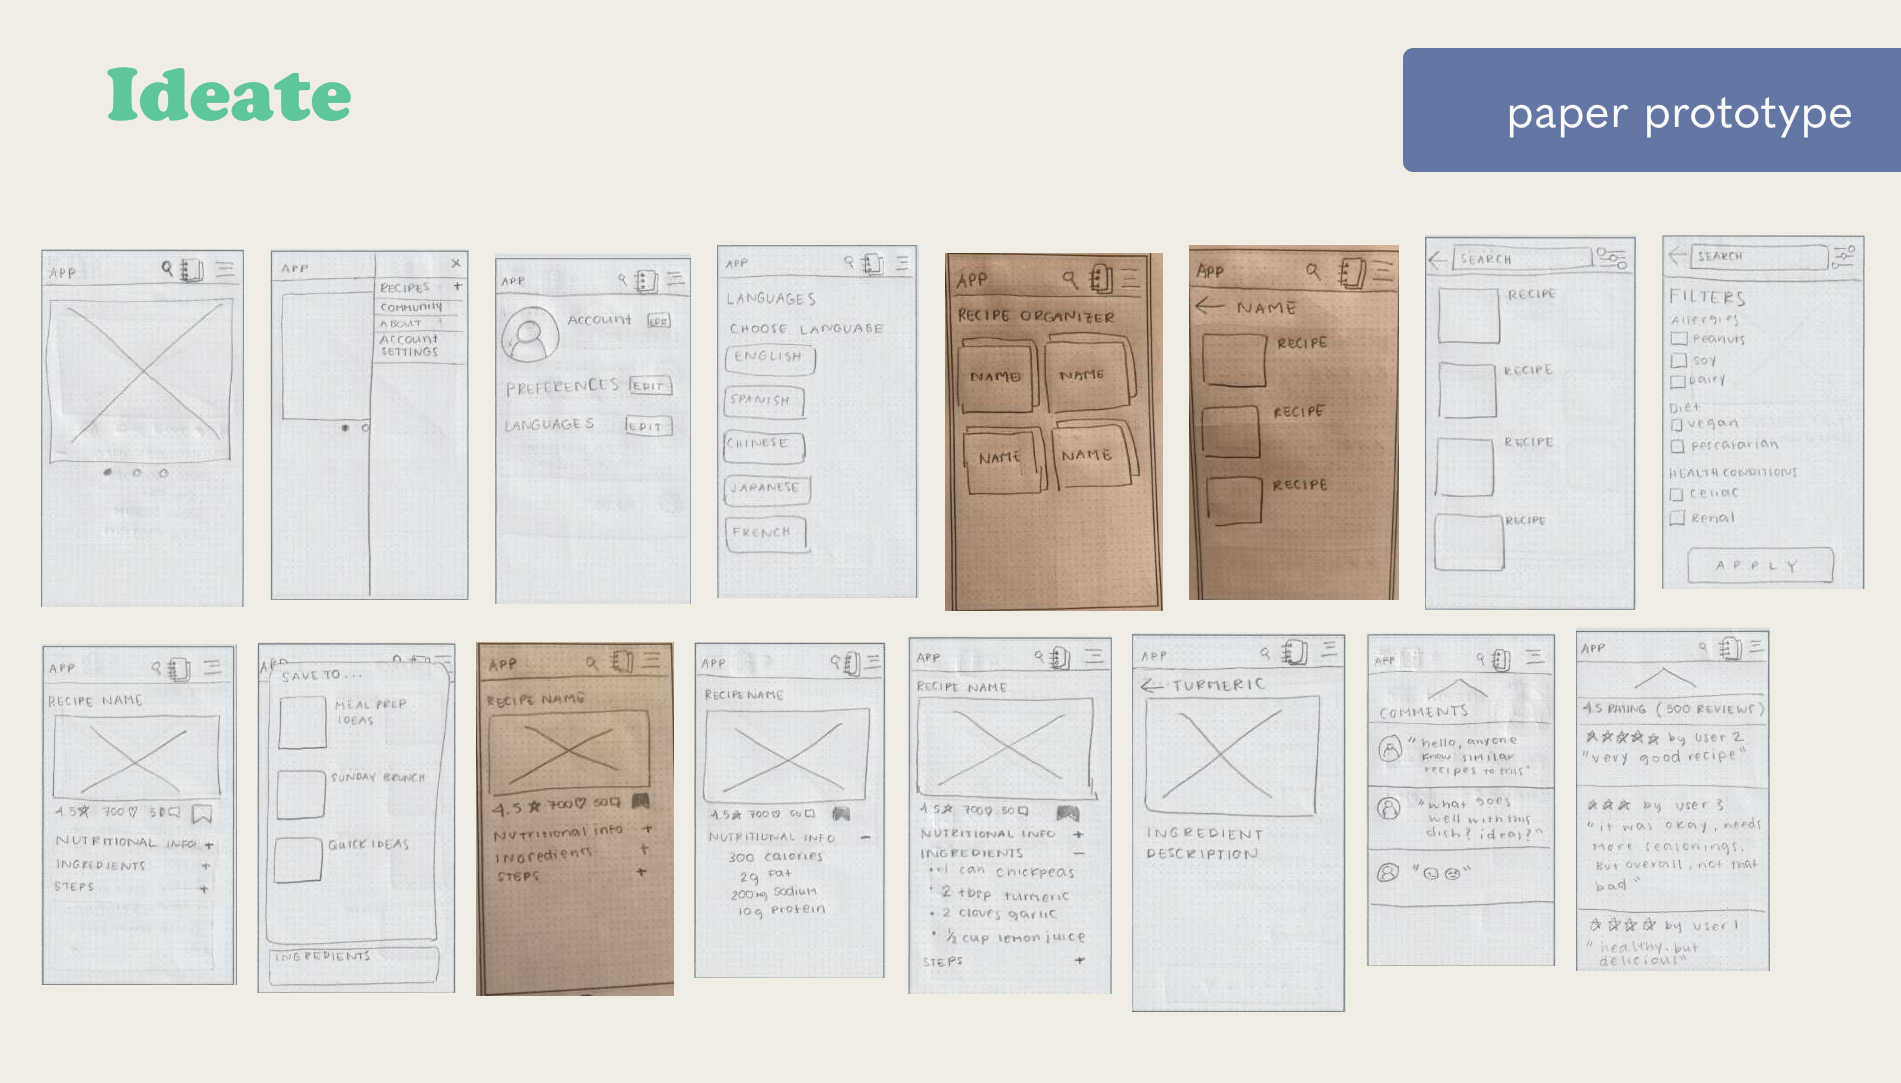 Ideate
paper prototype
APP
APP
RECIPES +
COMMUNITY
ABOUT
ACCOUNT
SETTINGS
APP
Account EDIT
PREFERENCES EDIT
LANGUAGES EDIT
APP
LANGUAGES
CHOOSE LANGUAGE
ENGLISH
SPANISH
CHINESE
JAPANESE
FRENCH
APP
RECIPE ORGANIZER
NAME NAME
NAME NAME
APP
← NAME
RECIPE
RECIPE
RECIPE
← SEARCH
RECIPE
RECIPE
RECIPE
RECIPE
← SEARCH
FILTERS
Allergies
Peanuts
Soy
Dairy
Diet
Vegan
Pescatarian
HEALTH CONDITIONS
Celiac
Renal
APPLY
APP
RECIPE NAME
4.5 700 50
NUTRITIONAL INFO +
INGREDIENTS +
STEPS +
APP
SAVE TO...
MEAL PREP
IDEAS
SUNDAY BRUNCH
QUICK IDEAS
INGREDIENTS
APP
RECIPE NAME
4.5 700 50
Nutritional info +
Ingredients +
STEPS +
APP
RECIPE NAME
4.5 700 50
NUTRITIONAL INFO -
300 calories
2g Fat
200mg Sodium
10g Protein
APP
RECIPE NAME
4.5 700 50
NUTRITIONAL INFO +
INGREDIENTS -
• 1 can chickpeas
• 2 tbsp turmeric
• 2 cloves garlic
• ½ cup lemon juice
STEPS +
APP
← TURMERIC
INGREDIENT
DESCRIPTION
APP
COMMENTS
"hello, anyone
know similar
recipes to this"
"what goes
well with this
dish? ideas?"
APP
4.5 RATING (500 REVIEWS)
by user 2
"very good recipe"
by user 3
"it was okay, needs
more seasonings.
But overall, not that
bad"
by user 1
"healthy, but
delicious"